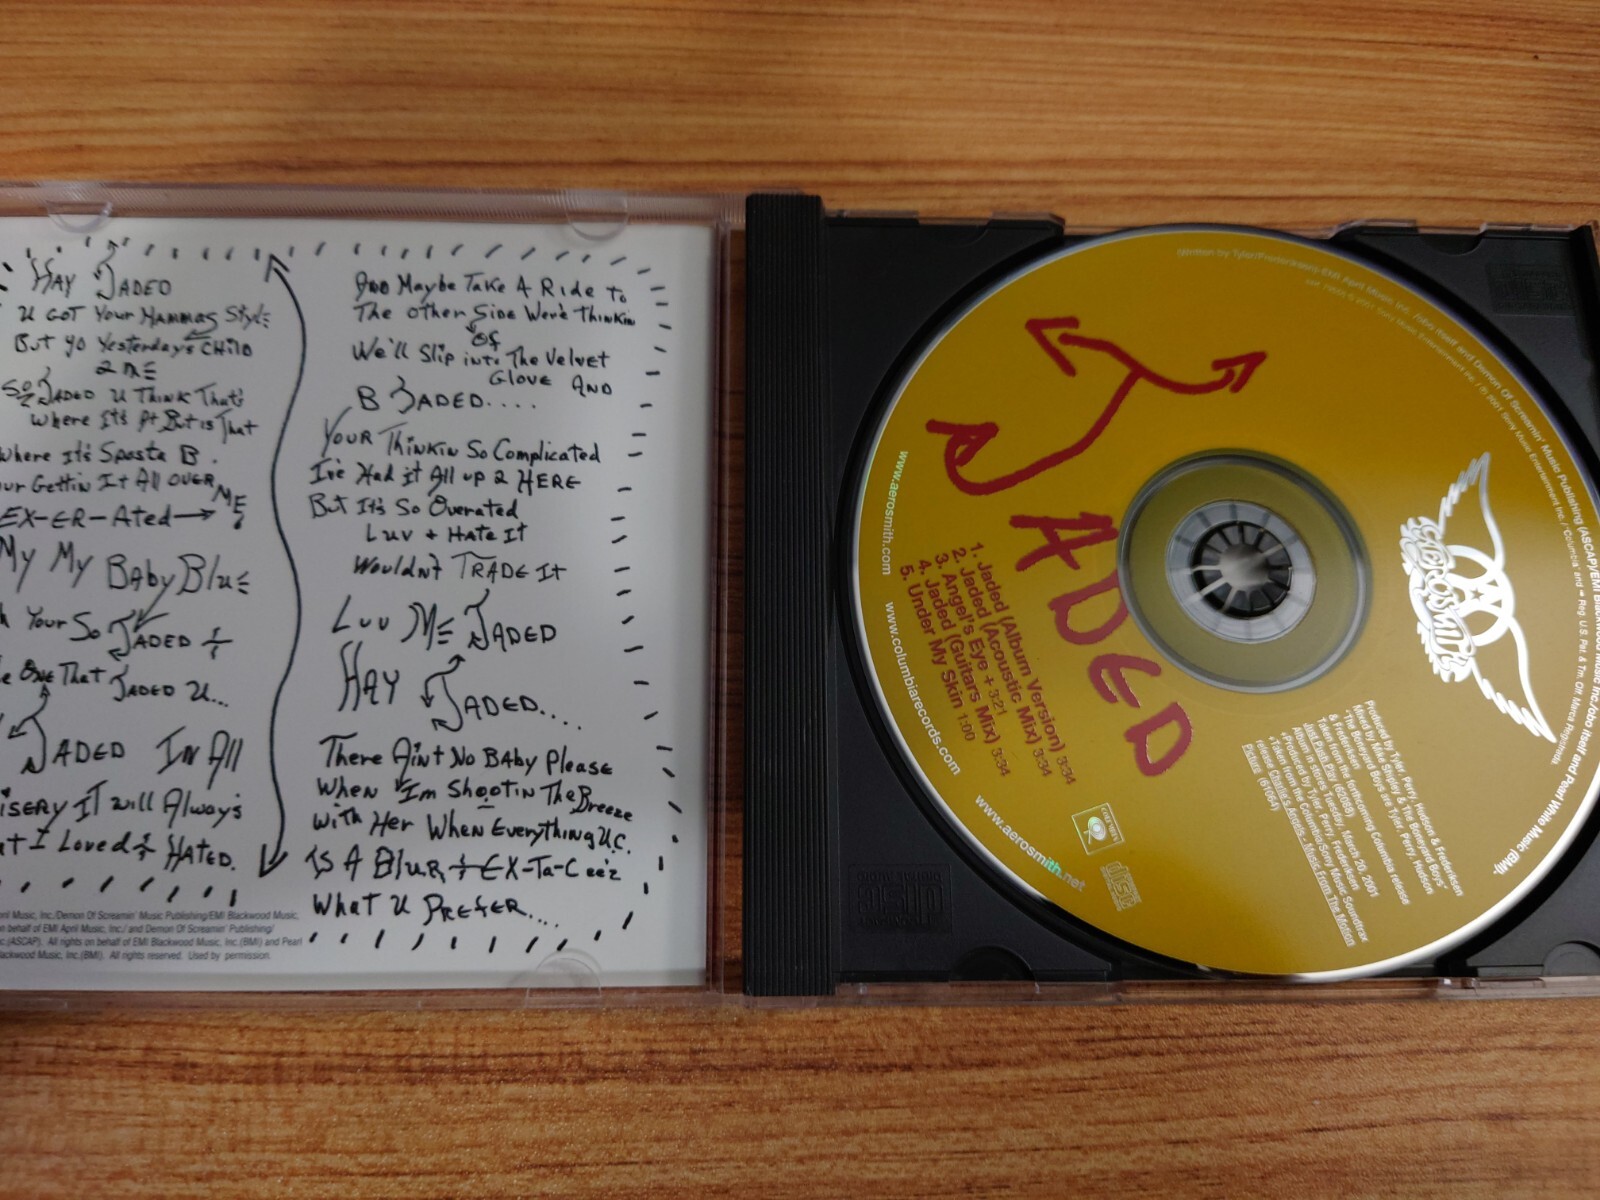 HAY JADED
U GOT Your Mammas Style
But yo Yesterday's CHILD
2 ME
So JADED U Think That's
Where It's At But is That
Where It's Sposta B.
Gettin It All OVER ME
EX-ER-Ated
My My Baby Blue
Your So JADED &
One That JADED U...
JADED In All
It will Always
I Loved & HATED.
Music, Inc./Demon Of Screamin' Music Publishing/EMI Blackwood Music,
on behalf of EMI April Music, Inc./ and Demon Of Screamin' Publishing/
(ASCAP). All rights on behalf of EMI Blackwood Music, Inc.(BMI) and Pearl
Music, Inc.(BMI). All rights reserved. Used by permission.
And Maybe Take A Ride to
The other Side We're Thinkin
of
We'll Slip into The Velvet
Glove AND
B JADED....
Your Thinkin So Complicated
I've Had it All up 2 HERE
But It's So Overated
Luv + Hate It
Wouldn't TRADE It
Luv ME JADED
HAY JADED....
There Ain't No BAby Please
When I'm Shootin The Breeze
With Her When Everything U.C.
IS A Blur + EX-Ta-C eez
What U Prefer...
JADED
1. Jaded (Album Version) 3:34
2. Jaded (Acoustic Mix) 3:34
3. Angel's Eye + 3:21
4. Jaded (Guitars Mix) 3:34
5. Under My Skin 1:00
www.aerosmith.com
www.columbiarecords.com
www.aerosmith.net
AEROSMITH
Produced by Tyler, Perry, Hudson & Frederiksen
Mixed by Mike Shipley & The Boneyard Boys*
*The Boneyard Boys are Tyler, Perry, Hudson
& Frederiksen
Taken from the forthcoming Columbia release
Just Push Play (62088)
Album in stores Tuesday, March 20, 2001
+Produced by Tyler, Perry, Frederiksen
+Taken from the Columbia/Sony Music Soundtrax
release Charlie's Angels - Music From The Motion
Picture (61064)
COLUMBIA
disc